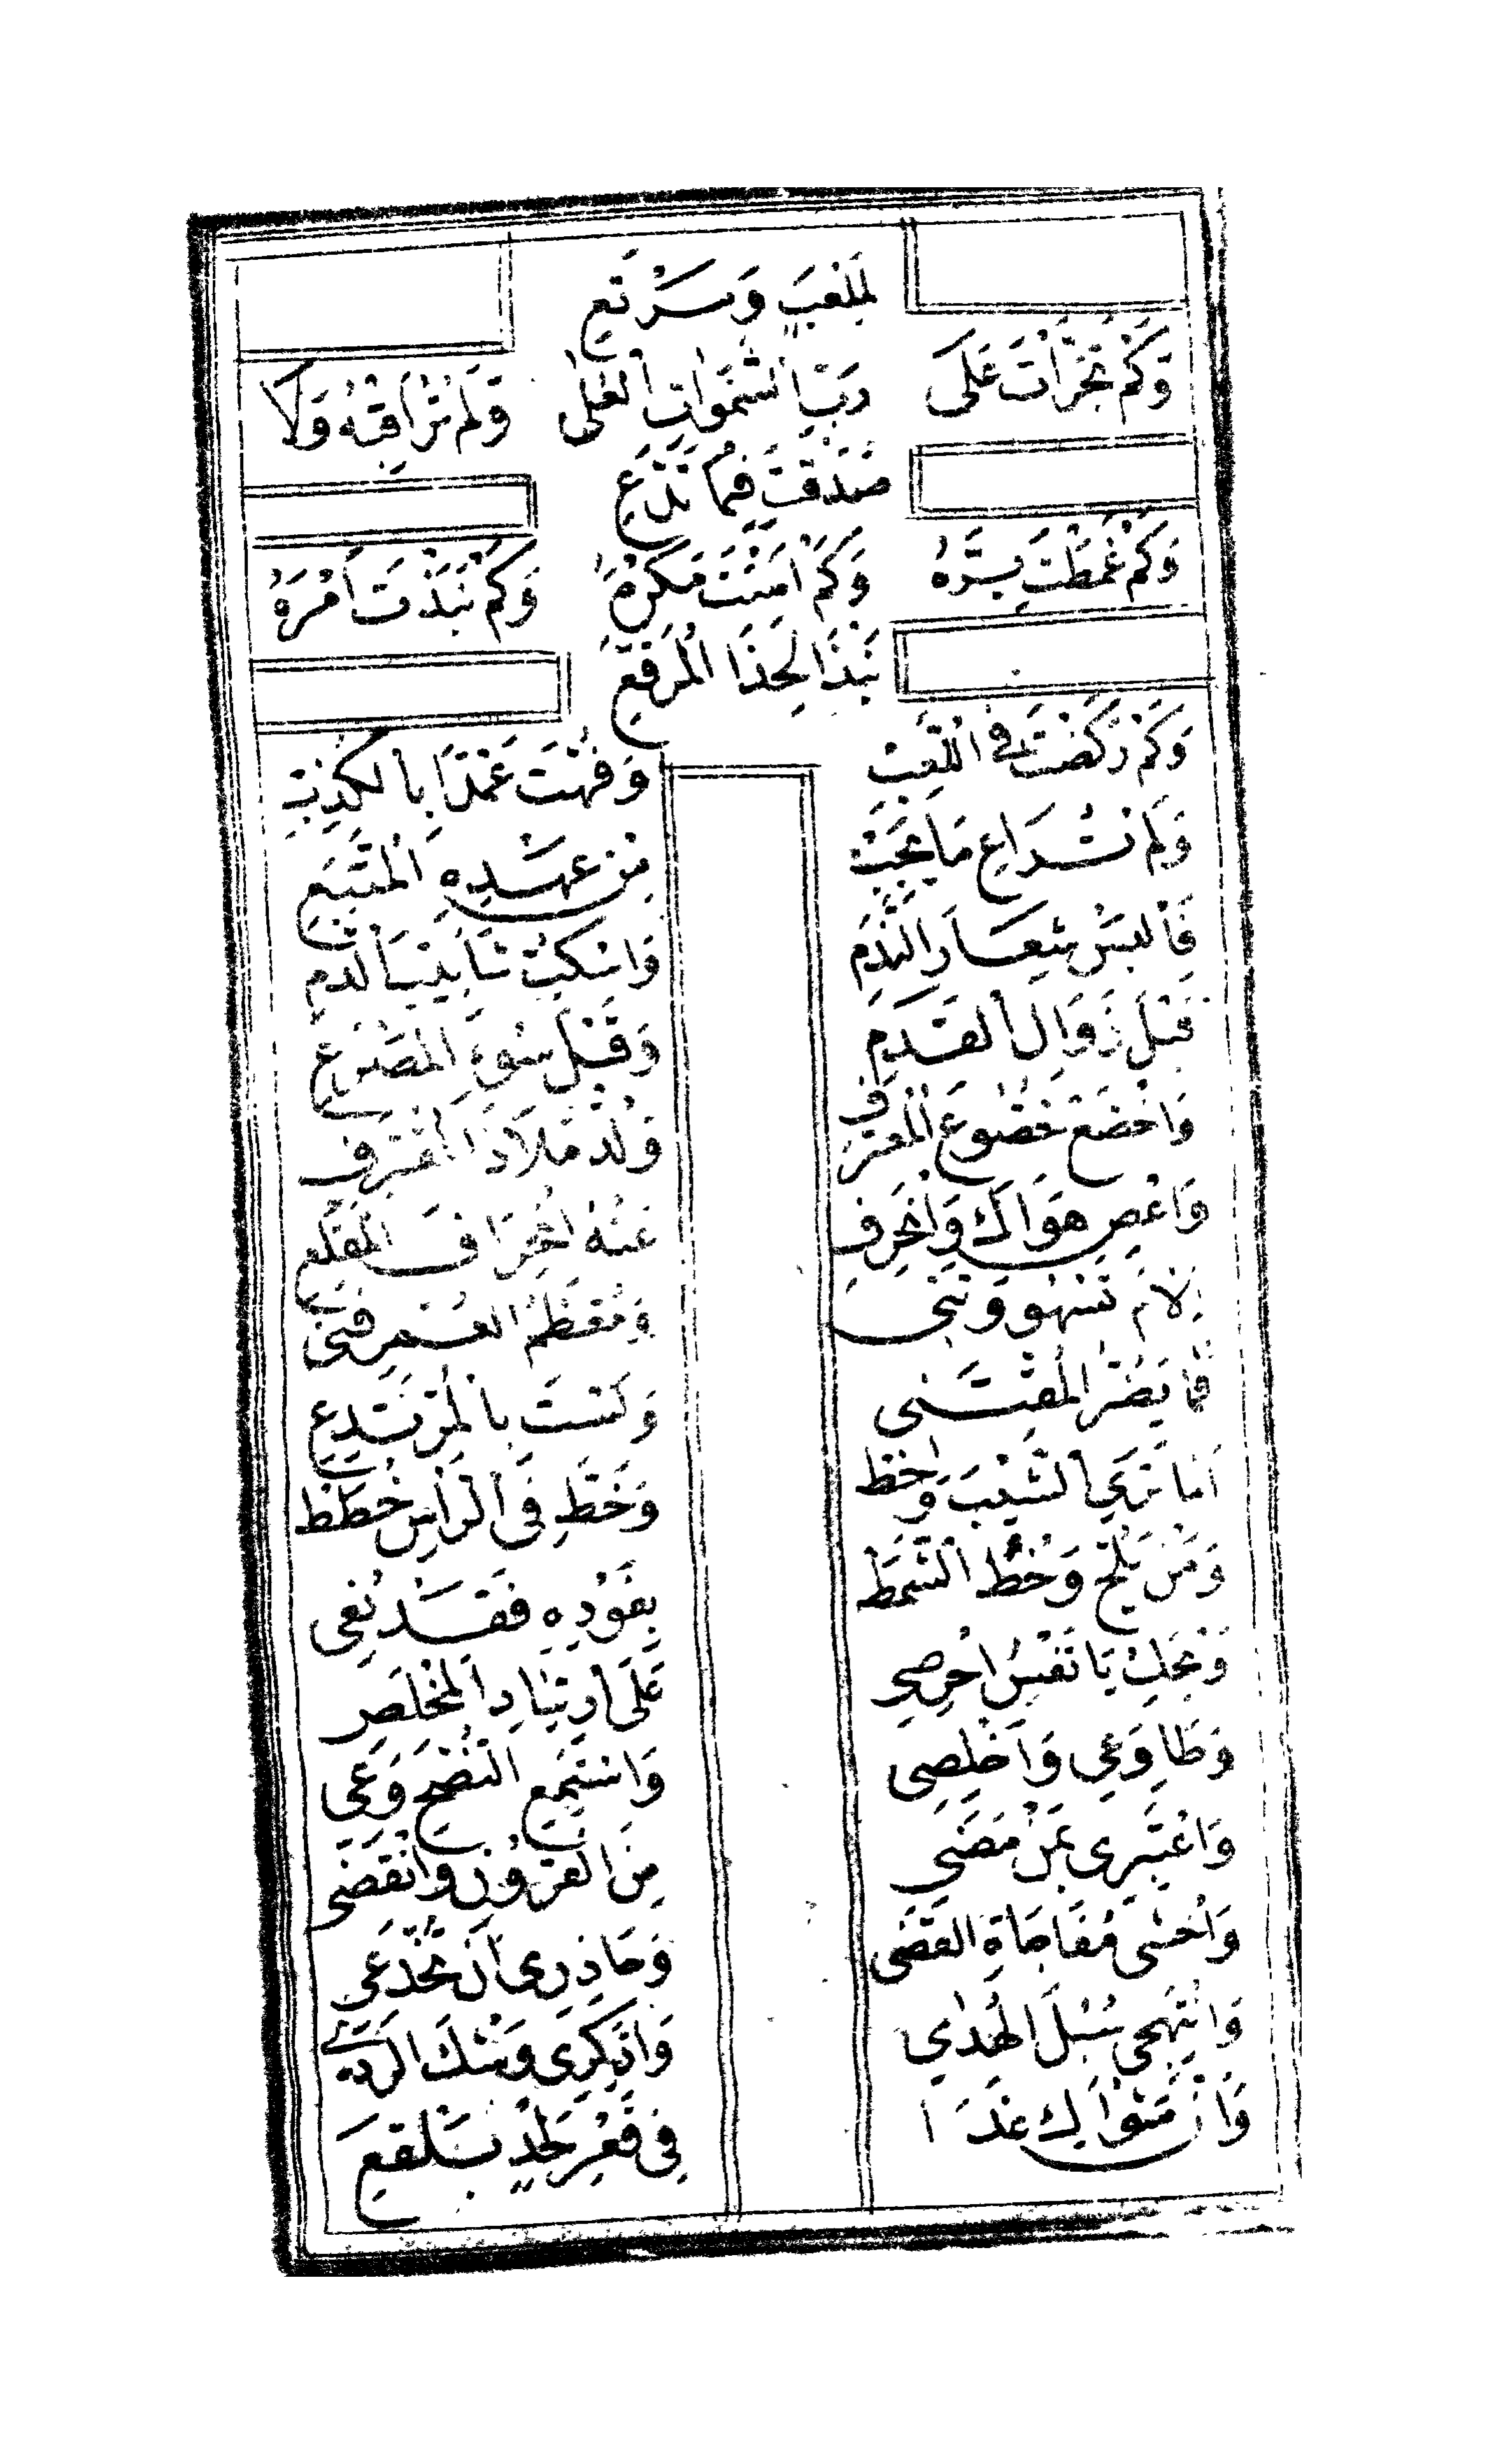 لِمَلْعَبٍ وَمَرْتَعِ
وَكَمْ تَجَرَّأْتَ عَلَى رَبِّ السَّمٰوَاتِ الْعُلَى وَلَمْ تُرَاقِبْهُ وَلَا
صَدَقْتَ فِيمَا تَدَّعِ
وَكَمْ غَمَطْتَ بِرَّهُ وَكَمْ أَمِنْتَ مَكْرَهُ وَكَمْ نَبَذْتَ أَمْرَهُ
نَبْذَ الْحِذَا الْمُرَقَّعِ
وَكَمْ رَكَضْتَ فِي اللَّعِبْ وَفُهْتَ عَمْدًا بِالْكَذِبْ
وَلَمْ تُرَاعِ مَا يَجِبْ مِنْ عَهْدِهِ الْمُتَّبَعِ
فَالْبَسْ شِعَارَ النَّدَمِ وَاسْكُبْ شَآبِيبَ الدَّمِ
قَبْلَ زَوَالِ الْقَدَمِ وَقَبْلَ سُوءِ الْمَصْرَعِ
وَاخْضَعْ خُضُوعَ الْمُعْتَرِفِ وَلُذْ مَلَاذَ الْمُقْتَرِفِ
وَاعْصِ هَوَاكَ وَانْحَرِفِ عَنْهُ انْحِرَافَ الْمُقْلِعِ
إِلَامَ تَسْهُو وَتَنِي وَمُعْظَمُ الْعُمْرِ فَنِي
فِيمَا يَضُرُّ الْمُقْتَنِي وَلَسْتَ بِالْمُرْتَدِعِ
أَمَا تَرَى الشَّيْبَ وَخَطْ وَخَطَّ فِي الرَّأْسِ خُطَطْ
وَمَنْ يَلُحْ وَخْطُ الشَّمَطْ بِفَوْدِهِ فَقَدْ نُعِي
وَيْحَكِ يَا نَفْسُ احْرِصِي عَلَى ارْتِيَادِ الْمَخْلَصِ
وَطَاوِعِي وَأَخْلِصِي وَاسْتَمِعِ النُّصْحَ وَعِي
وَاعْتَبِرِي بِمَنْ مَضَى مِنَ الْقُرُونِ وَانْقَضَى
وَاخْشَى مُفَاجَاةَ الْقَضَى وَحَاذِرِي أَنْ تُخْدَعِي
وَانْتَهِجِي سُبُلَ الْهُدَى وَاذَّكِرِي وَشْكَ الرَّدَى
وَأَنَّ مَثْوَاكِ غَدَا فِي قَعْرِ لَحْدٍ بَلْقَعِ